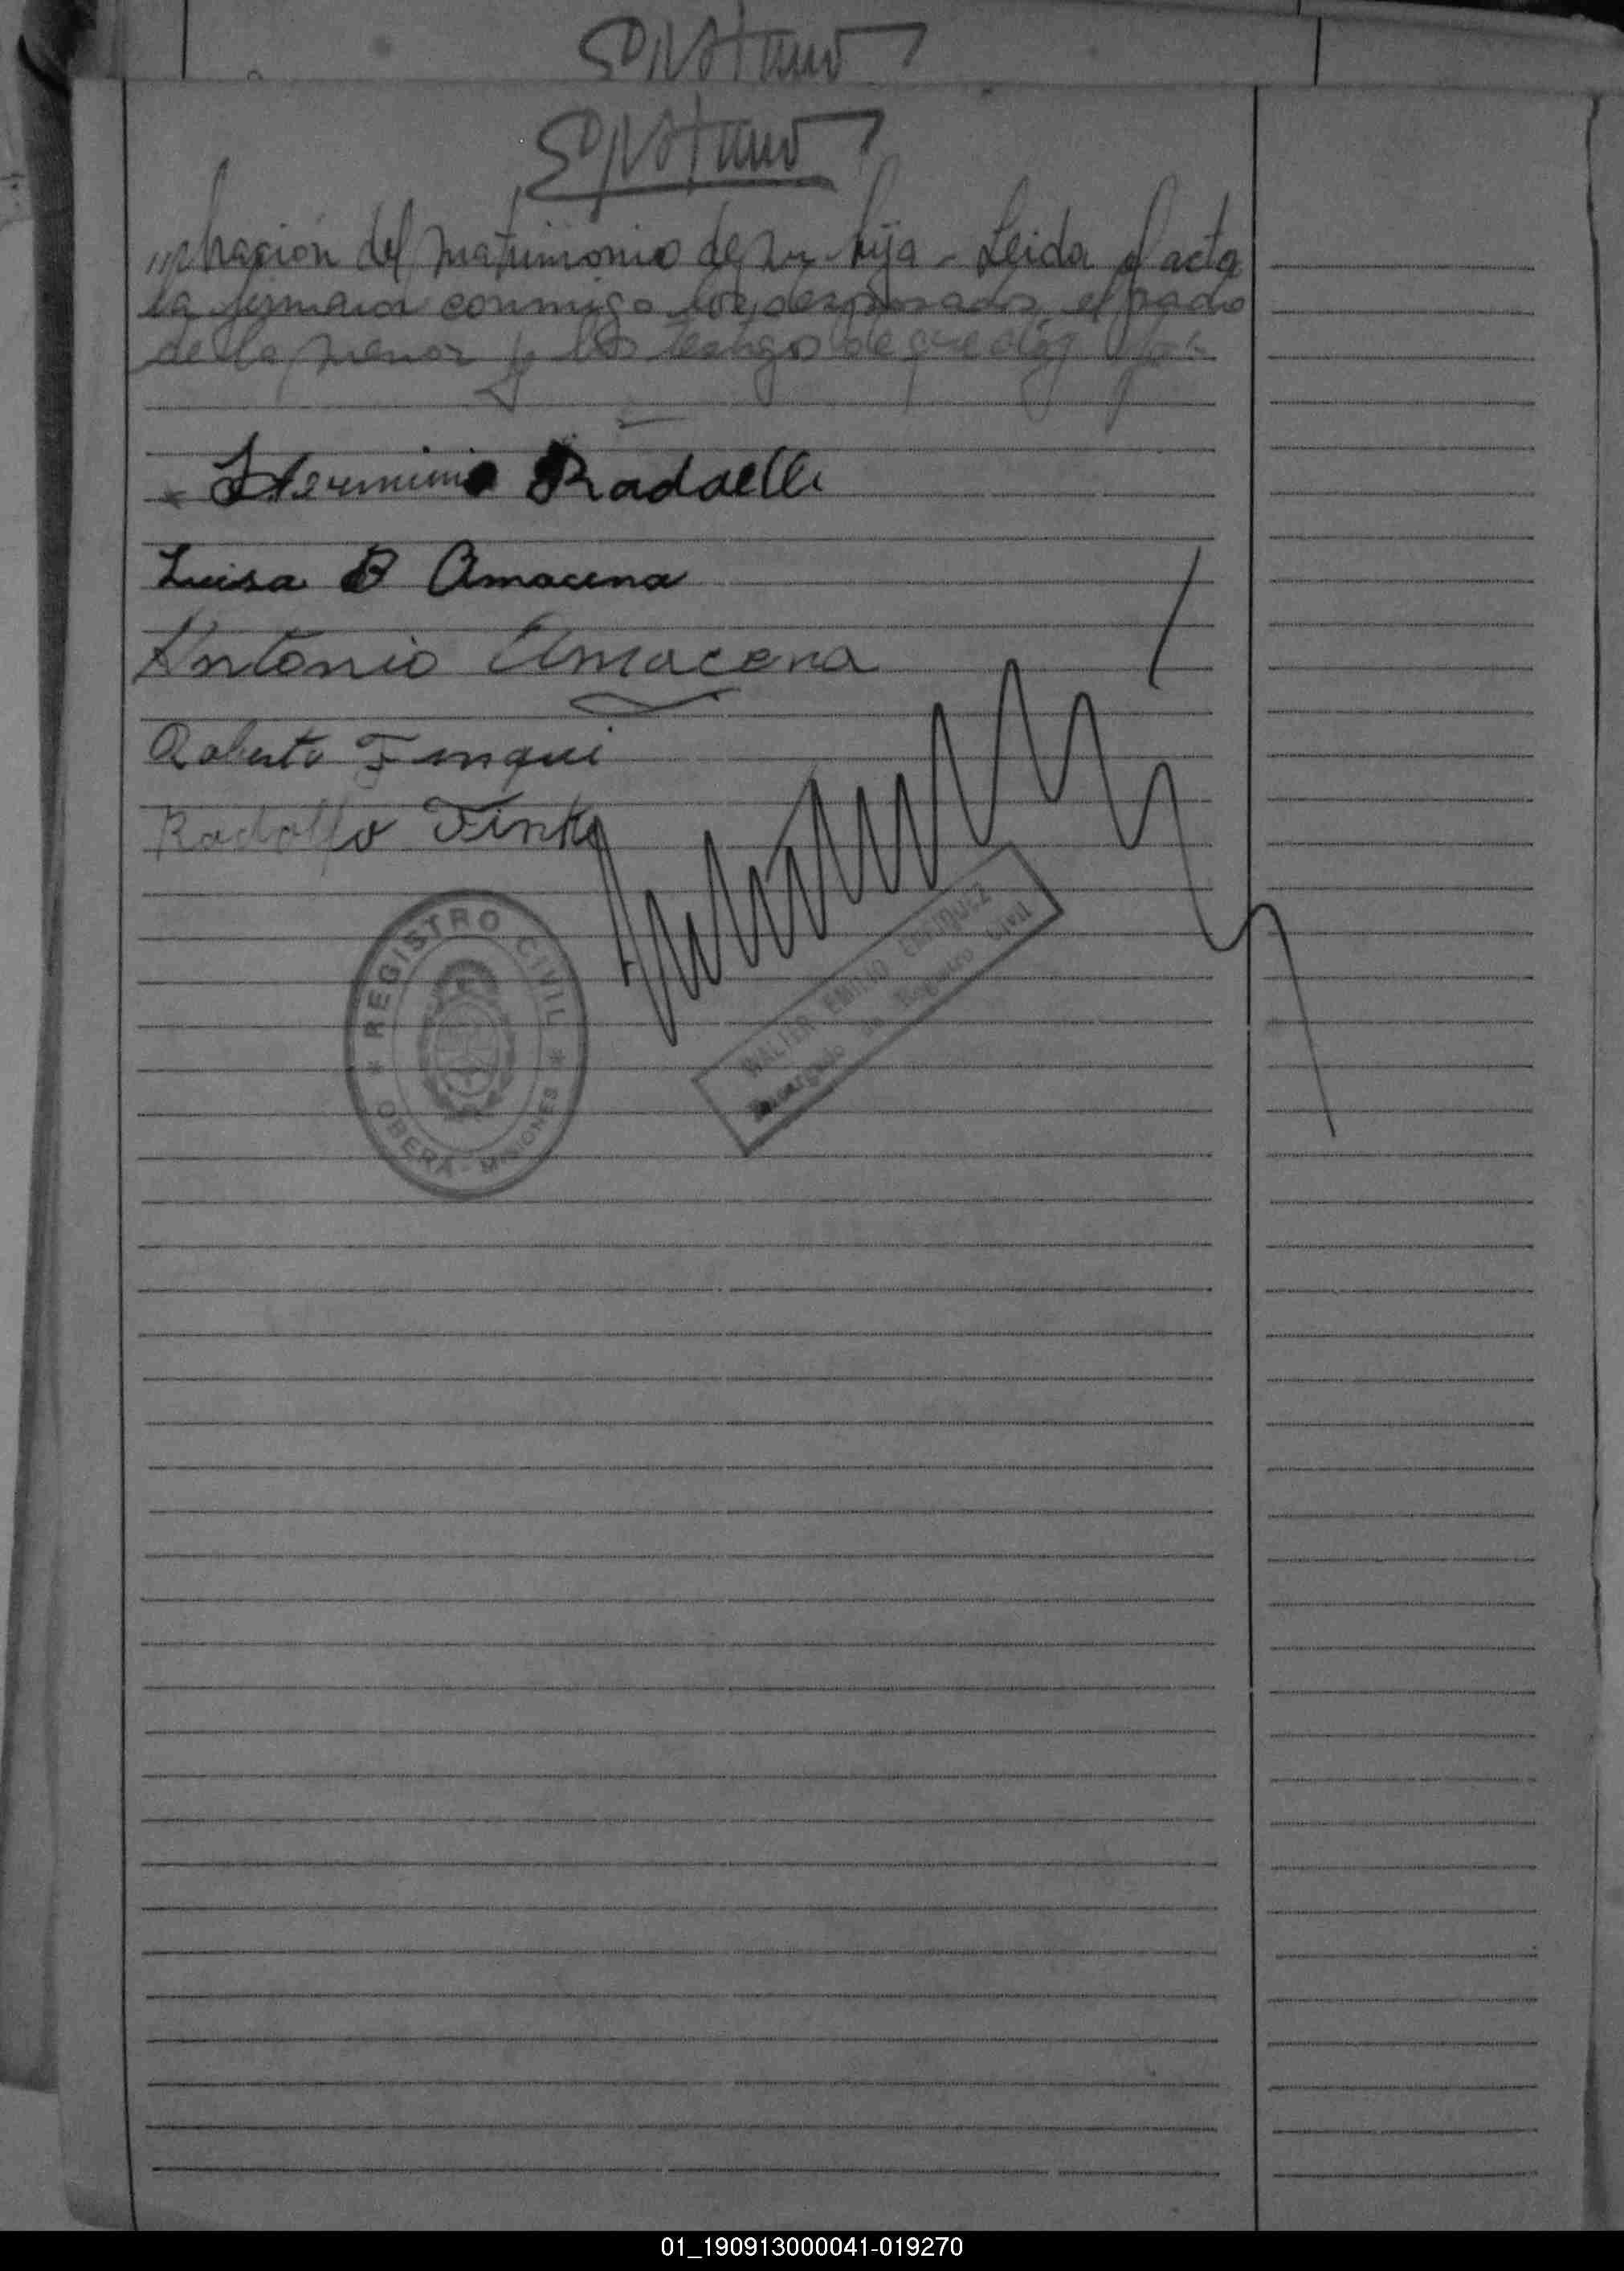 del matrimonio de su hija - Leida el acta
la firman conmigo los desposados, el padre
de la menor y los testigos de que doy fé.
Herminio Radaelli
Luisa B Amacena
Antonio Amacena
Roberto Finqui
Rodolfo Finke
REGISTRO CIVIL
OBERÁ - MISIONES
WALTER EMILIO ENRIQUEZ
Encargado de Registro Civil
01_190913000041-019270